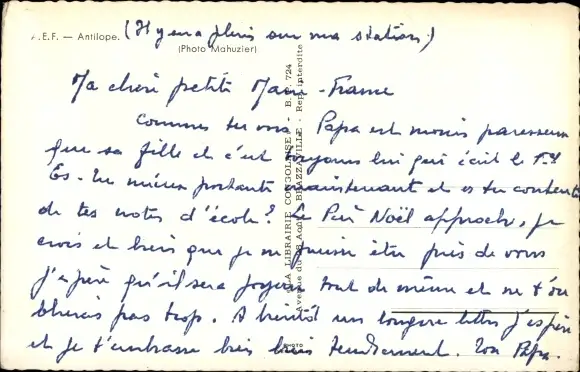 A.E.F. — Antilope. (Il y en a plein sur ma station)
(Photo Mahuzier)
Ma chère petite Marie-France
Comme tu vois Papa est moins paresseux
que sa fille et c'est toujours lui qui écrit le 1er
Es-tu mieux portante maintenant et es tu contente
de tes notes d'école? Le Père Noël approche, je
crois et bien que je ne puisse être près de vous
j'espère qu'il sera joyeux tout de même et ne t'ou
bliera pas trop. A bientôt une longue lettre j'espère
et je t'embrasse bien bien tendrement. Ton Papa.
A LA LIBRAIRIE CONGOLAISE - B. P. 724
Avenue du 28 Août - BRAZZAVILLE - Rep. interdite
PHOTO